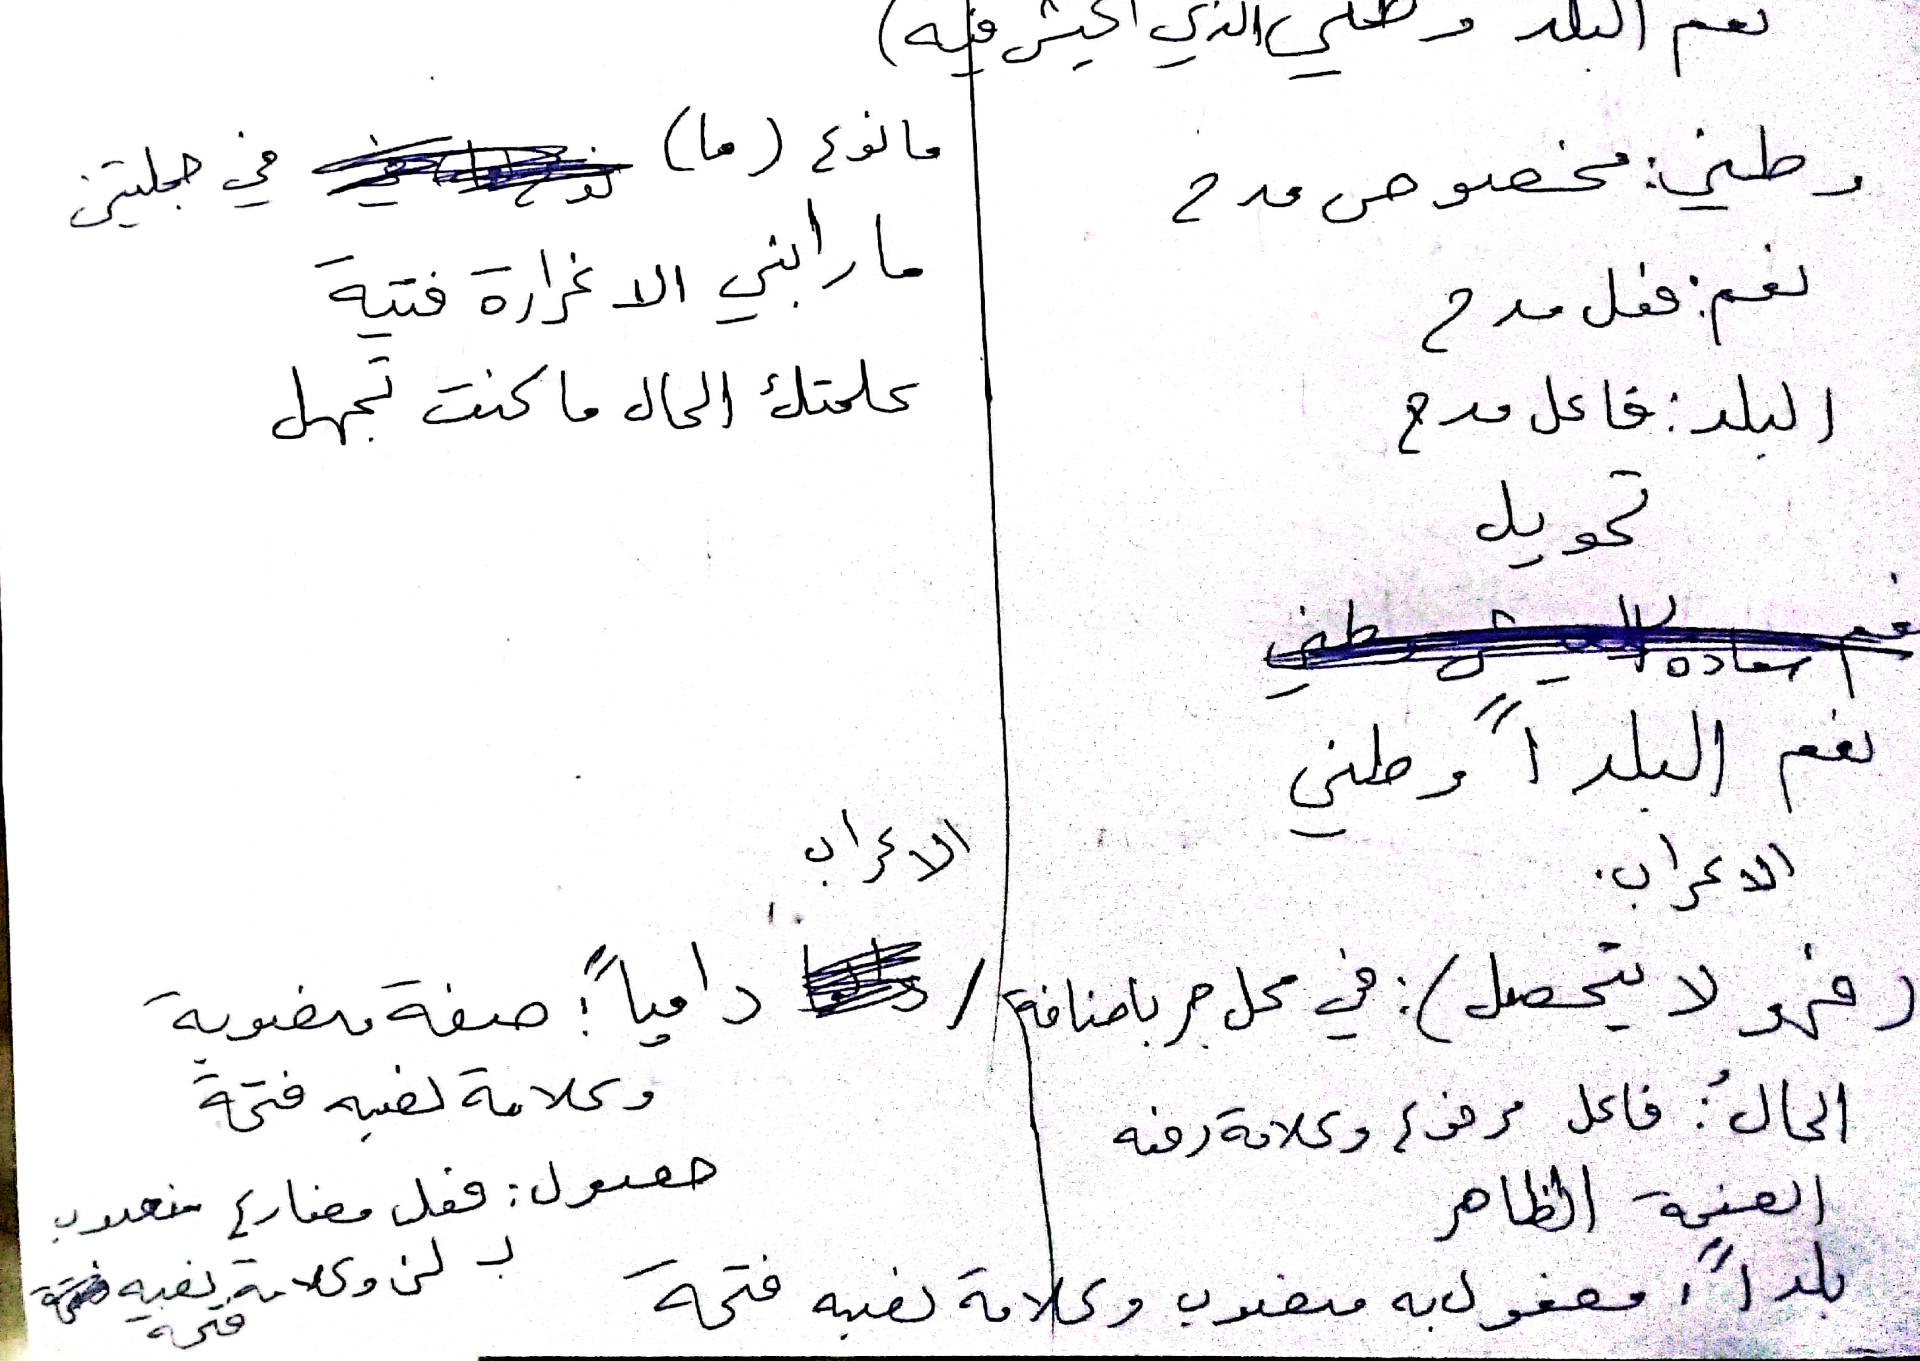 نعم البلد وطني الذي اعيش فيه)
وطني: مخصوص مدح
نعم: فعل مدح
البلد: فاعل مدح
تحويل
نعم البلد اً وطني
الاعراب.
(فهو لا يتحصل): في محل جر باضافة /
الحالُ: فاعل مرفوع وعلامة رفعه
الضمة الظاهر
بلد اً: مفعول به منصوب وعلامة نصبه فتحة
مانوع (ما) في جملتين
ما رابني الا غرارة فتية
علمتك الحال ما كنت تجهل
الاعراب
دامياً: صفة منصوبة
وعلامة نصبه فتحة
فعل مضارع منصوب
ب لن وعلامة نصبه
فتحة